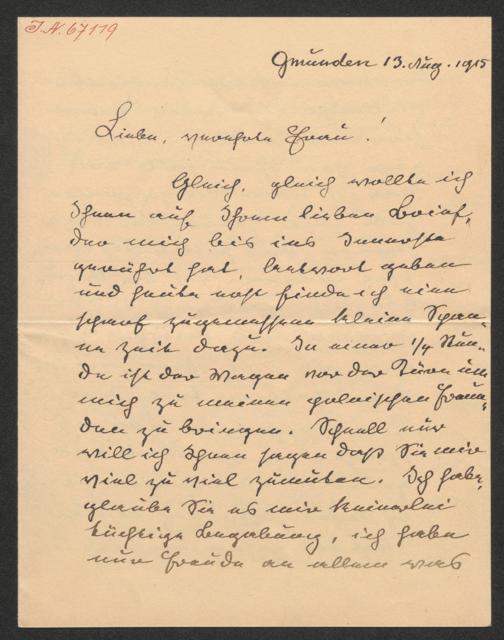 I.N. 67119
Gmunden 13. Aug. 1915
Liebe, verehrte Frau!
Gleich, gleich wollte ich
Ihnen auf Ihren lieben Brief,
der mich bis ins Innerste
gerührt hat, Antwort geben
und heute erst finde ich eine
scharf zugemessene kleine Span-
ne Zeit dazu. In einer 1/4 Stun-
de ist der Wagen vor der Türe um
mich zu meinen polnischen Freun-
den zu bringen. Schnell nur
will ich Ihnen sagen daß Sie mir
viel zu viel zumuten. Ich habe,
glauben Sie es mir keinerlei
tüchtige Begabung, ich habe
nur Freude an allem was